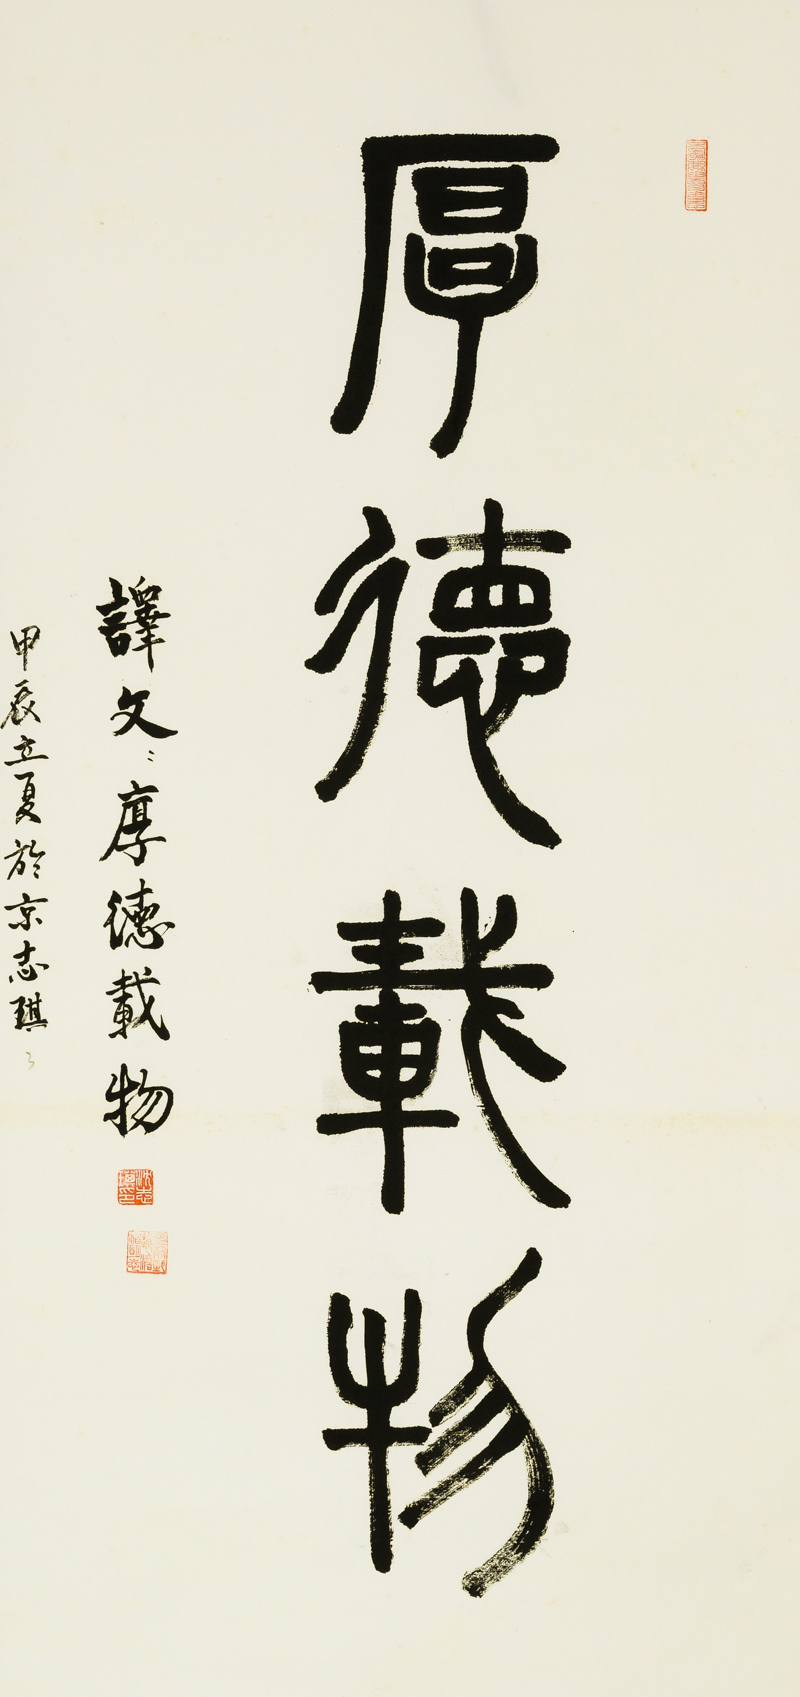 厚德載物
譯文：厚德載物
甲辰立夏於京志琪